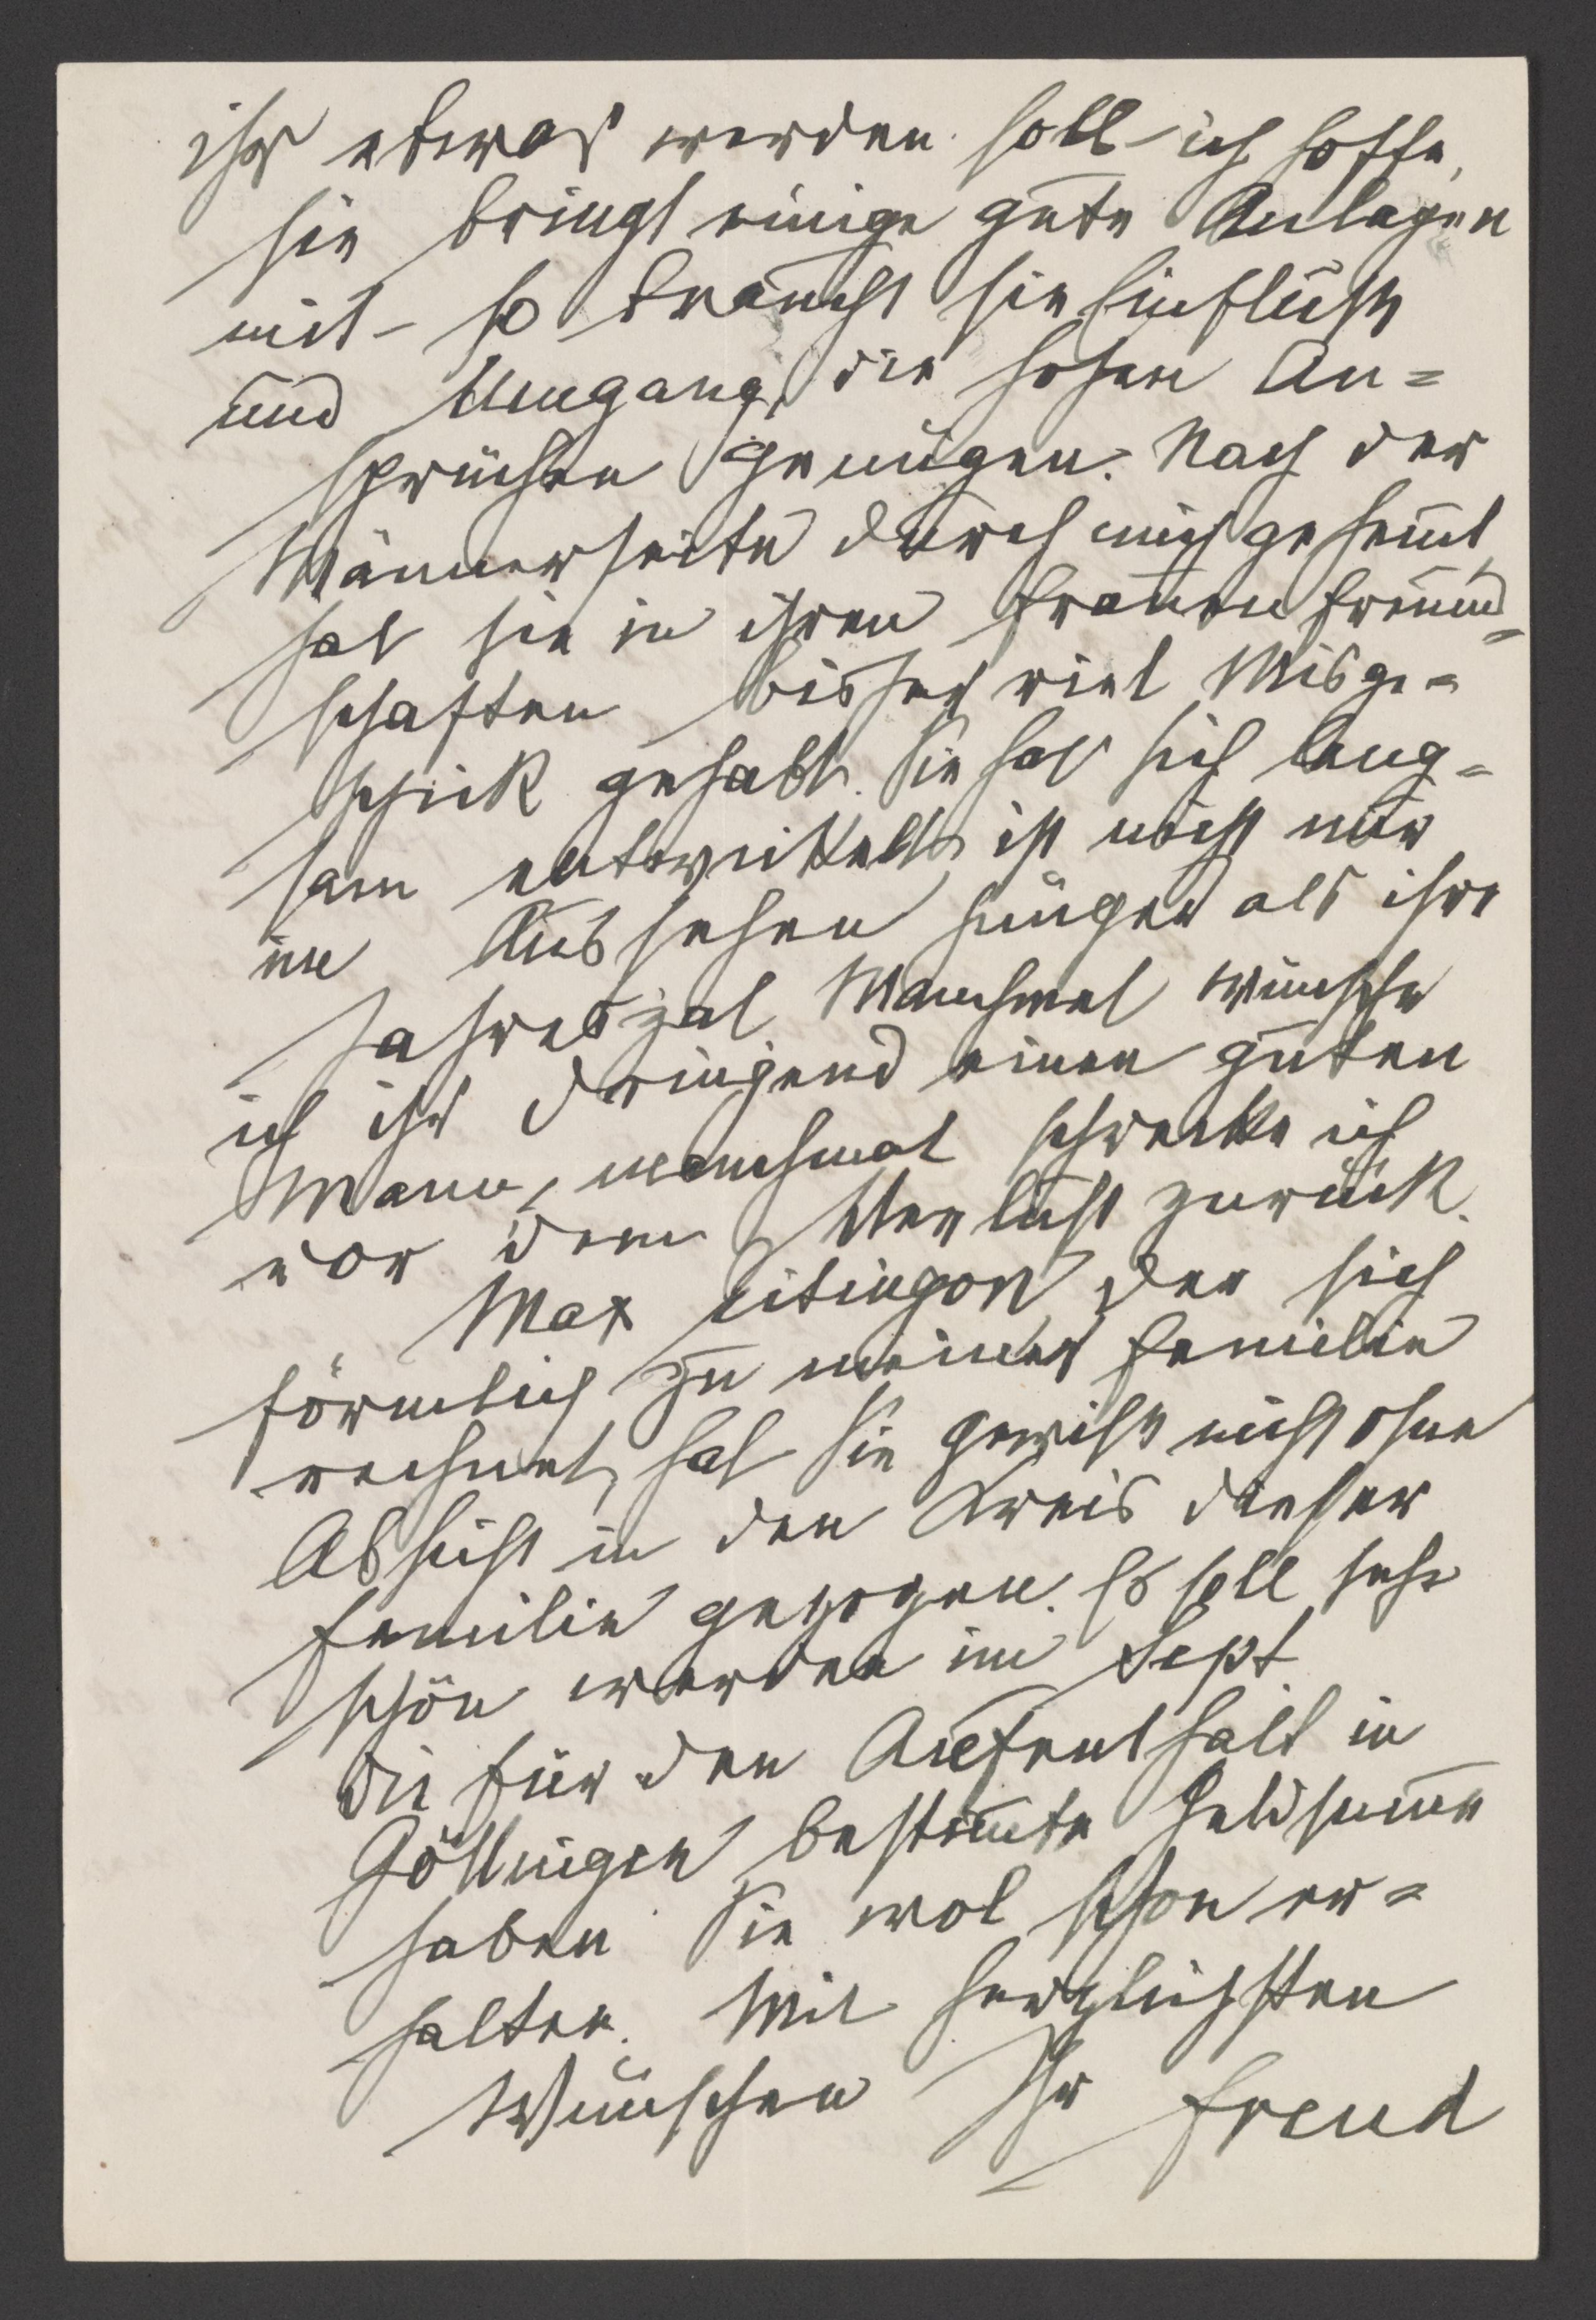 ihr etwas werden soll – ich hoffe,
sie bringt einige gute Anlagen
mit – so braucht sie Einflüsse
und Umgang, die hohen An=
sprüchen genügen. Nach der
Männerseite durch mich gehemt,
hat sie in ihren Frauenfreund=
schaften bisher viel Misge=
schick gehabt. Sie hat sich lang=
sam entwickelt, ist nicht nur
im Aussehen jünger als ihre
Jahreszal. Manchmal wünsche
ich ihr dringend einen guten
Mann, manchmal schrecke ich
vor dem Verlust zurück.
Max Eitingon, der sich
förmlich zu meiner Familie
rechnet, hat Sie gewiss nicht ohne
Absicht in den Kreis dieser
Familie gezogen. Es soll sehr
schön werden im Sept.
Die für den Aufenthalt in
Göttingen bestimte Geldsume
haben Sie wol schon er=
halten. Mit herzlichsten
Wünschen Ihr Freud